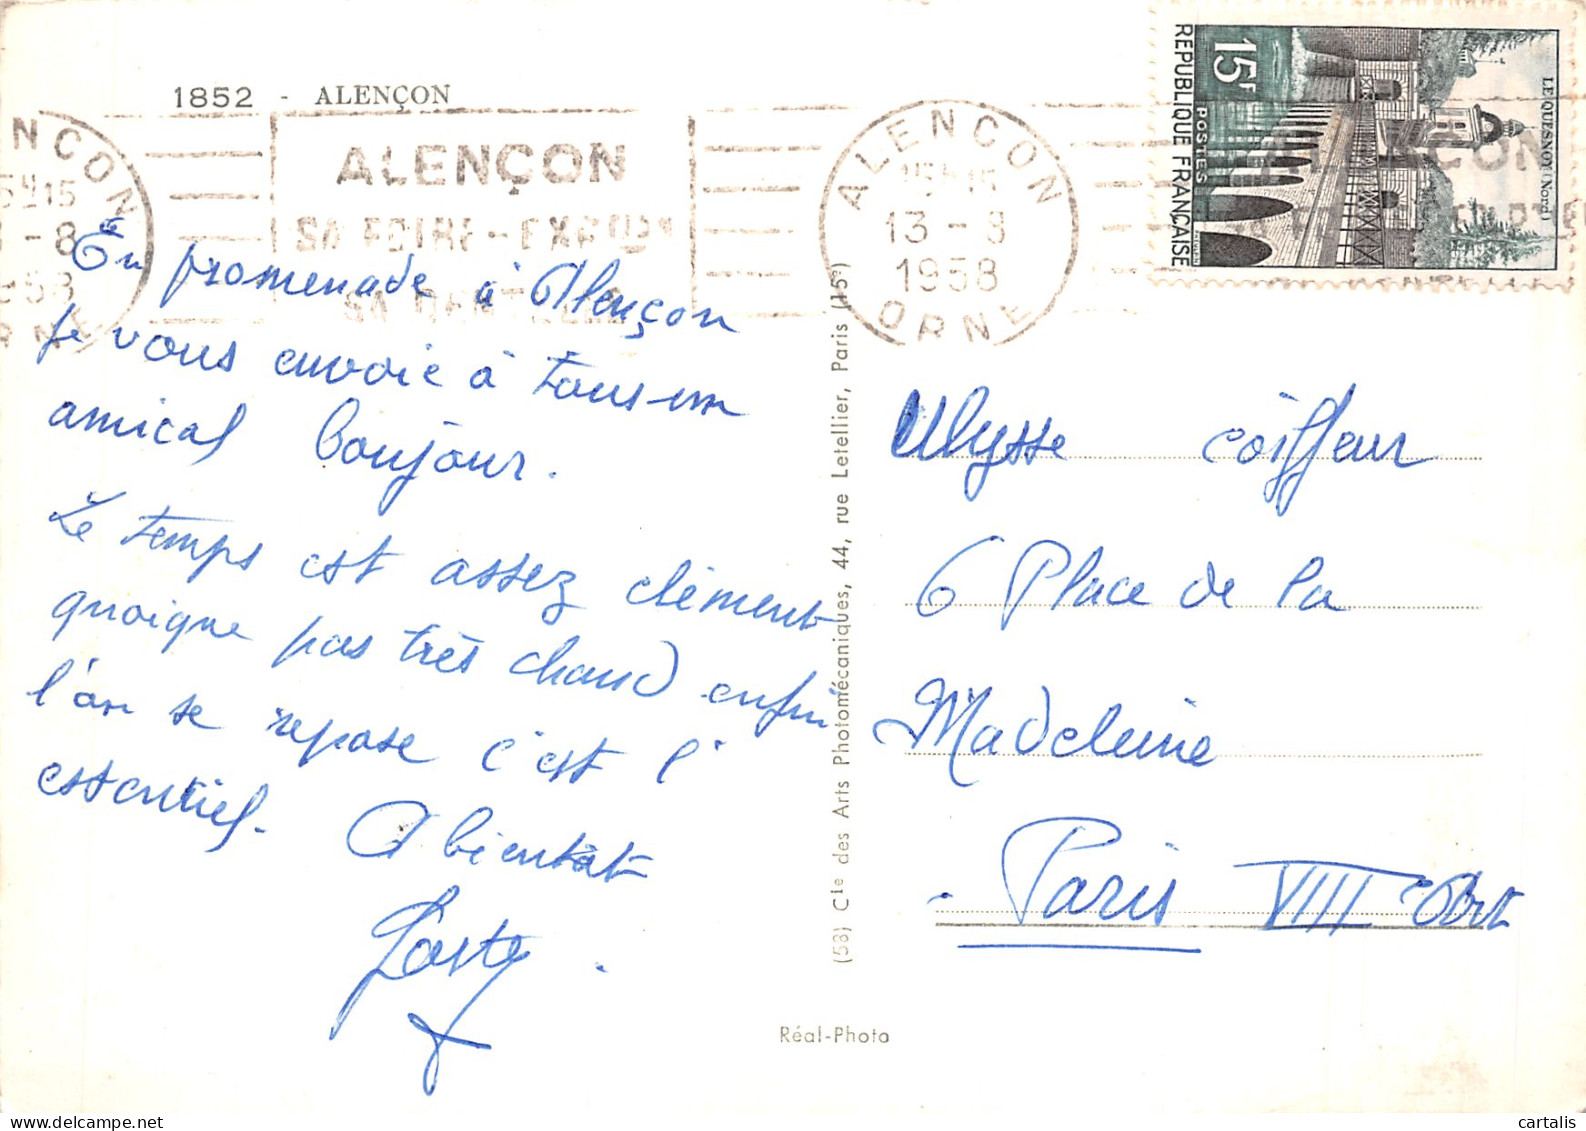 1852 - ALENÇON
ALENÇON
SA FOIRE-EXPOSN
SA DENTELLE
ALENCON
15H15
13-8
1958
ORNE
15F
POSTES
REPUBLIQUE FRANÇAISE
LE QUESNOY (Nord)
En promenade à Alençon
je vous envoie à tous un
amical bonjour.
Le temps est assez clément
quoique pas très chaud enfin
l'on se repose c'est l'
essentiel. A bientôt
(58) Cie des Arts Photomécaniques, 44, rue Letellier, Paris (15e)
Réal-Photo
Ulysse coiffeur
6 Place de la
Madeleine
Paris VIII Arrt